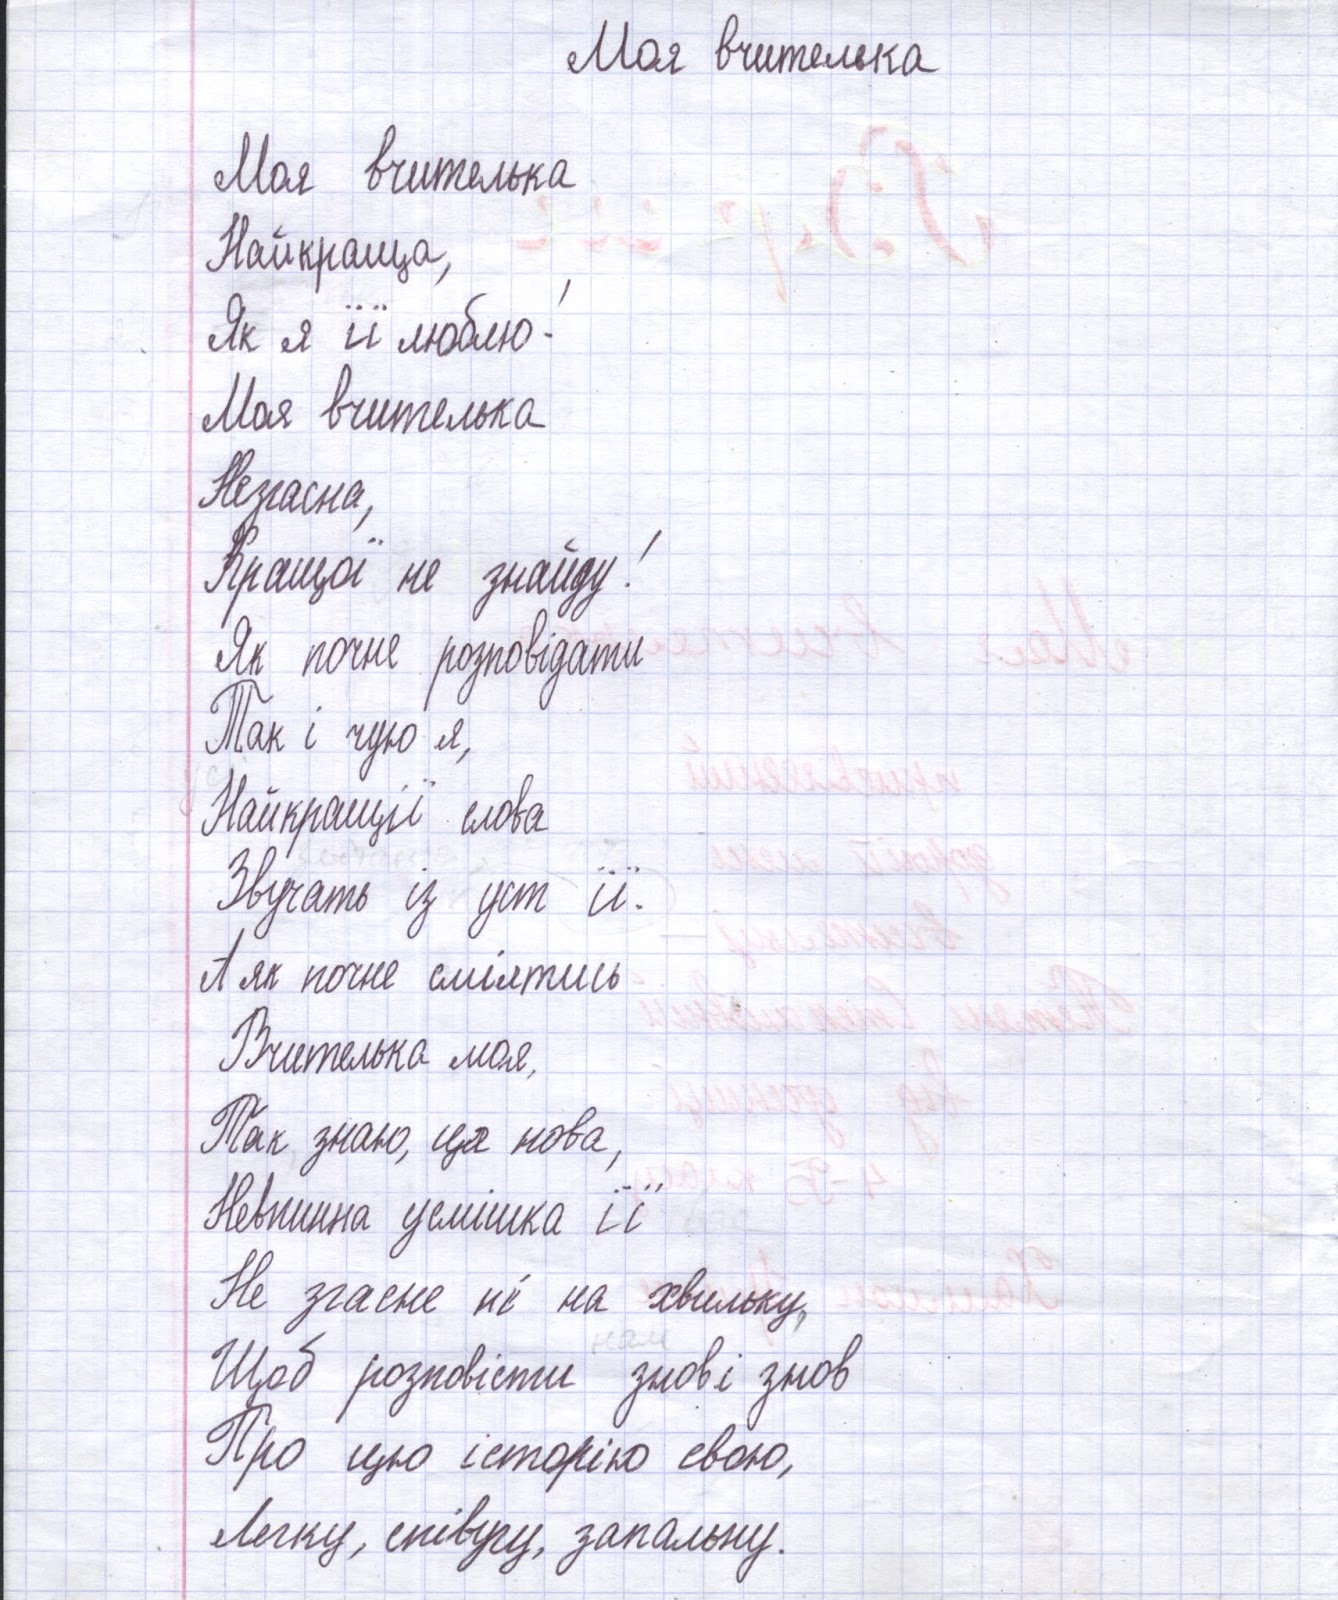 Моя вчителька
Моя вчителька
Найкраща,
Як я її люблю!
Моя вчителька
Незгасна,
Кращої не знайду!
Як почне розповідати
Так і чую я,
Найкращії слова
Звучать із уст її.
А як почне сміятись
Вчителька моя,
Так знаю, ця нова,
Невпинна усмішка її
Не згасне ні на хвильку,
нам
Щоб розповісти знов і знов
Про цю історію свою,
Легку, співучу, запальну.